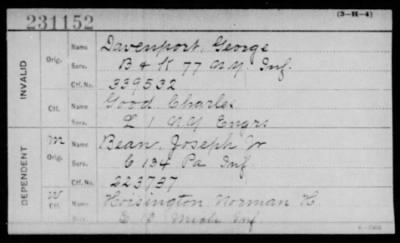 231152
(3-H-4)
INVALID
Orig. Name Davenport, George
Serv. B & K 77 N.Y. Inf.
Ctf. No. 339532
Ctf. Name Good Charles
Serv. L 1 N.Y. Engrs
DEPENDENT
M Orig. Name Bean, Joseph W
Serv. C 134 Pa Inf.
Ctf. No. 223737
W Ctf. Name Horsington Norman H.
Serv. Mich Inf